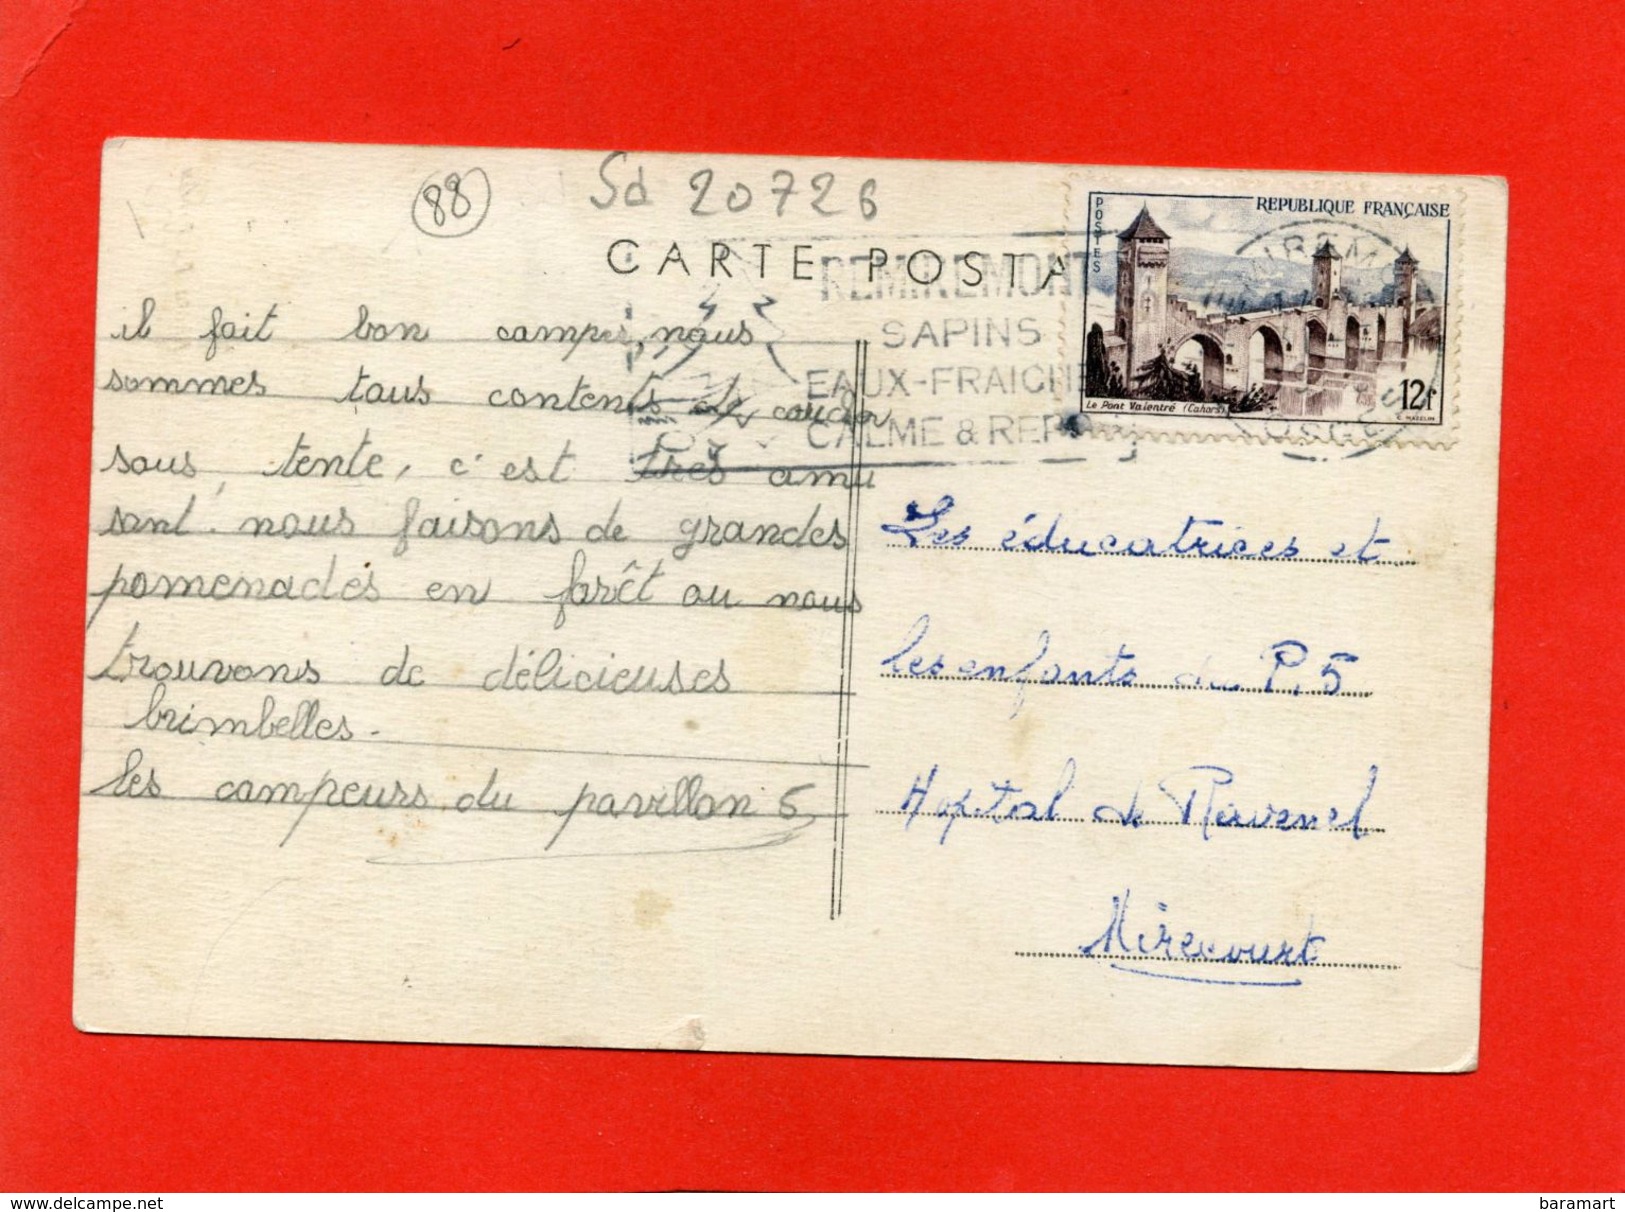 88
Sd 20726
CARTE POSTA
REMIREMONT
SAPINS
EAUX-FRAICHE
CALME & REPO
POSTES
REPUBLIQUE FRANÇAISE
Le Pont Valentré (Cahors)
12f
C. MAZELIN
il fait bon camper, nous
sommes tous contents de coucher
sous tente, c'est très amu
sant. nous faisons de grandes
pomenades en forêt ou nous
trouvons de délicieuses
brimbelles.
les campeurs du pavillon 5
Les éducatrices et
les enfants du P.5
Hopital de Ravenel
Mirecourt
baramart